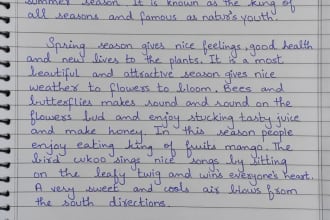 summer season. It is known as the king of
all seasons and famous as natur's youth.
Spring season gives nice feelings, good health
and new lives to the plants. It is a most
beautiful and attractive season gives nice
weather to flowers to bloom. Bees and
butterflies makes round and round on the
flowers bud and enjoy stucking tasty juice
and make honey. In this season people
enjoy eating king of fruits mango. The
bird cukoo sings nice songs by sitting
on the leafy twig and wins everyone's heart.
A very sweet and cools air blows from
the south directions.